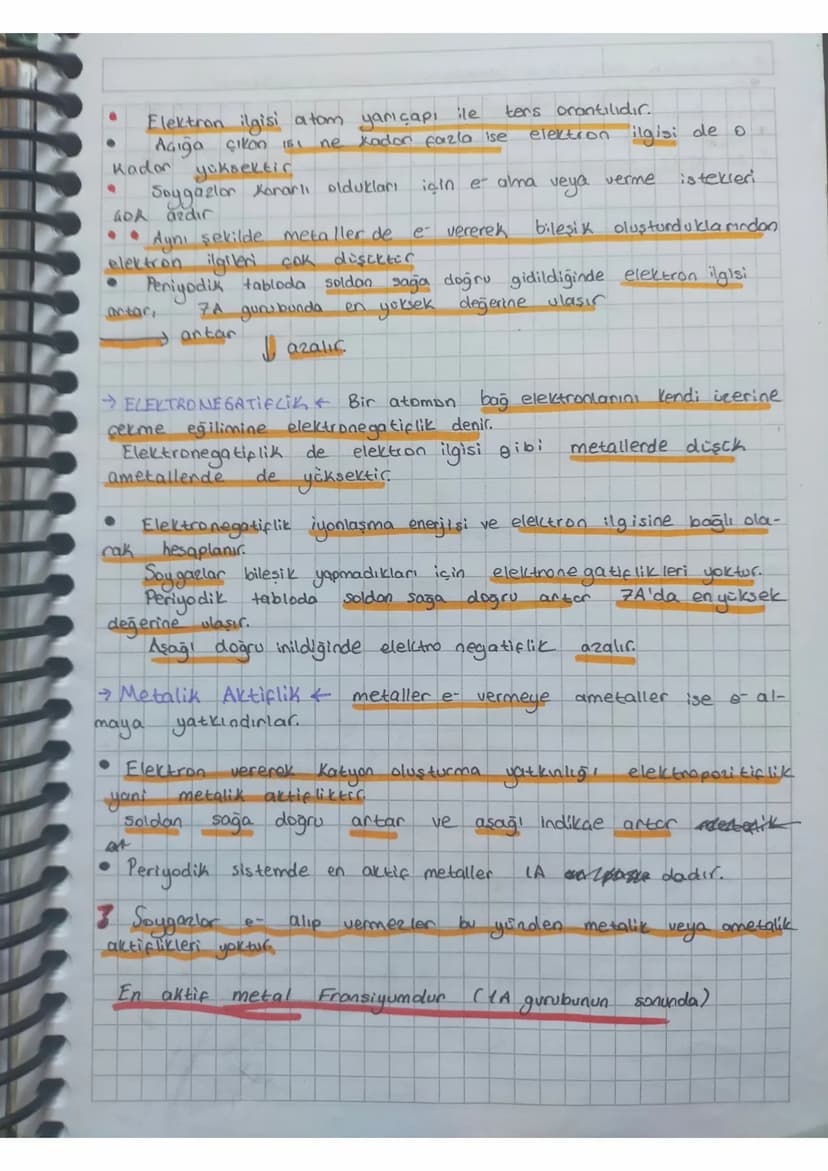 Elektron ilgisi atom yarıçapı ile ters orantılıdır.
Açığa çıkan ısı ne kadar fazla ise elektron ilgisi de o
kadar yüksektir
Soygazlar kararlı oldukları için e- alma veya verme istekleri
çok azdır
Aynı şekilde metaller de e- vererek bileşik oluşturduklarından
elektron ilgileri çok düşüktür
Periyodik tabloda soldan sağa doğru gidildiğinde elektron ilgisi
artar, 7A gurubunda en yüksek değerine ulaşır
→ artar
↓ azalır.
→ ELEKTRONEGATİFLİK ← Bir atomun bağ elektronlarını kendi üzerine
çekme eğilimine elektronegatiflik denir.
Elektronegatiflik de elektron ilgisi gibi metallerde düşük
ametallerde de yüksektir.
Elektronegatiflik iyonlaşma enerjisi ve elektron ilgisine bağlı ola-
rak hesaplanır.
Soygazlar bileşik yapmadıkları için elektronegatiflikleri yoktur.
Periyodik tabloda soldan sağa doğru artar 7A'da en yüksek
değerine ulaşır.
Aşağı doğru inildiğinde elektro negatiflik azalır.
→ Metalik Aktiflik ← metaller e- vermeye ametaller ise e- al-
maya yatkındırlar.
Elektron vererek Katyon oluşturma yatkınlığı elektropozitiflik
yani metalik aktifliktir.
soldan sağa doğru artar ve aşağı indikçe artar
Periyodik sistemde en aktif metaller 1A dadır.
Soygazlar e- alıp vermezler bu yüzden metalik veya ametalik
aktiflikleri yoktur.
En aktif metal Fransiyumdur (1A gurubunun sonunda)